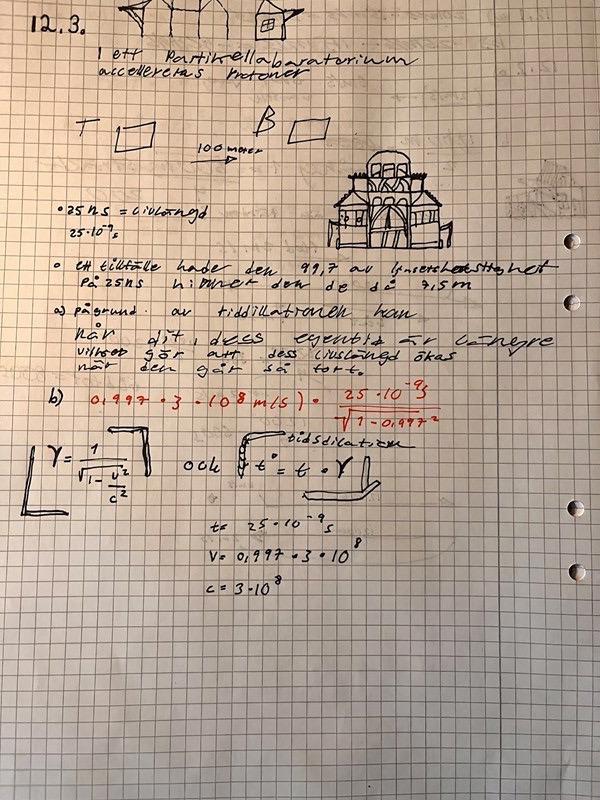 12.3.
I ett Partikellabaratorium
accelleretas Protoner
T B
100 meter
• 25 ns = Livslängd
25·10⁻⁹s
o ett tillfälle hade den 99,7 av ljusets hastighet
På 25ns hinner den de då 7,5m
a) på grund. av tiddillationen kan
når dit, dess egentid är längre
vilket gör att dess livslängd ökas
när den går så fort.
b) 0,997 · 3 · 10⁸ m/s) · 25 · 10⁻⁹s / √1 - 0,997²
γ = 1 / √1 - v²/c² och tidsdilation t° = t · γ
t = 25 · 10⁻⁹s
V = 0,997 · 3 · 10⁸
c = 3 · 10⁸